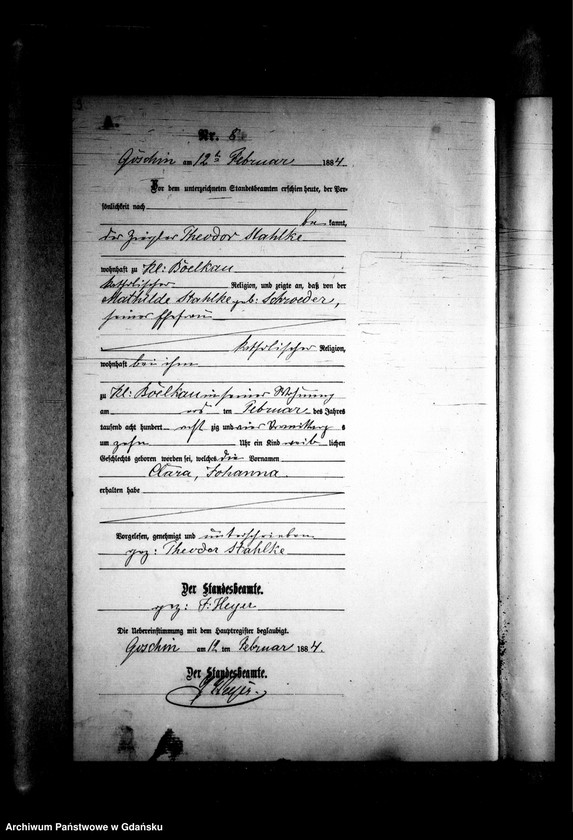 A.
Nr.
Goschin am 12ten Februar 1884.
Vor dem unterzeichneten Standesbeamten erschien heute, der Per-
sönlichkeit nach
be kannt,
der Ziegler Theodor Stahlke
wohnhaft zu Kl: Böelkau
katholischer Religion, und zeigte an, daß von der
Mathilde Stahlke geb: Schroeder,
seiner Ehefrau
katholischer Religion,
wohnhaft bei ihm
zu Kl: Böelkau in seiner Wohnung
am ten Februar des Jahres
tausend acht hundert acht zig und vier Vormittag s
um zehn Uhr ein Kind weib lichen
Geschlechts geboren worden sei, welches die Vornamen
Clara, Johanna
erhalten habe
Vorgelesen, genehmigt und unterschrieben
gez: Theodor Stahlke
Der Standesbeamte.
gez: F. Heyer
Die Uebereinstimmung mit dem Hauptregister beglaubigt.
Goschin am 12 ten Februar 1884.
Der Standesbeamte.
Heyer.
Archiwum Państwowe w Gdańsku